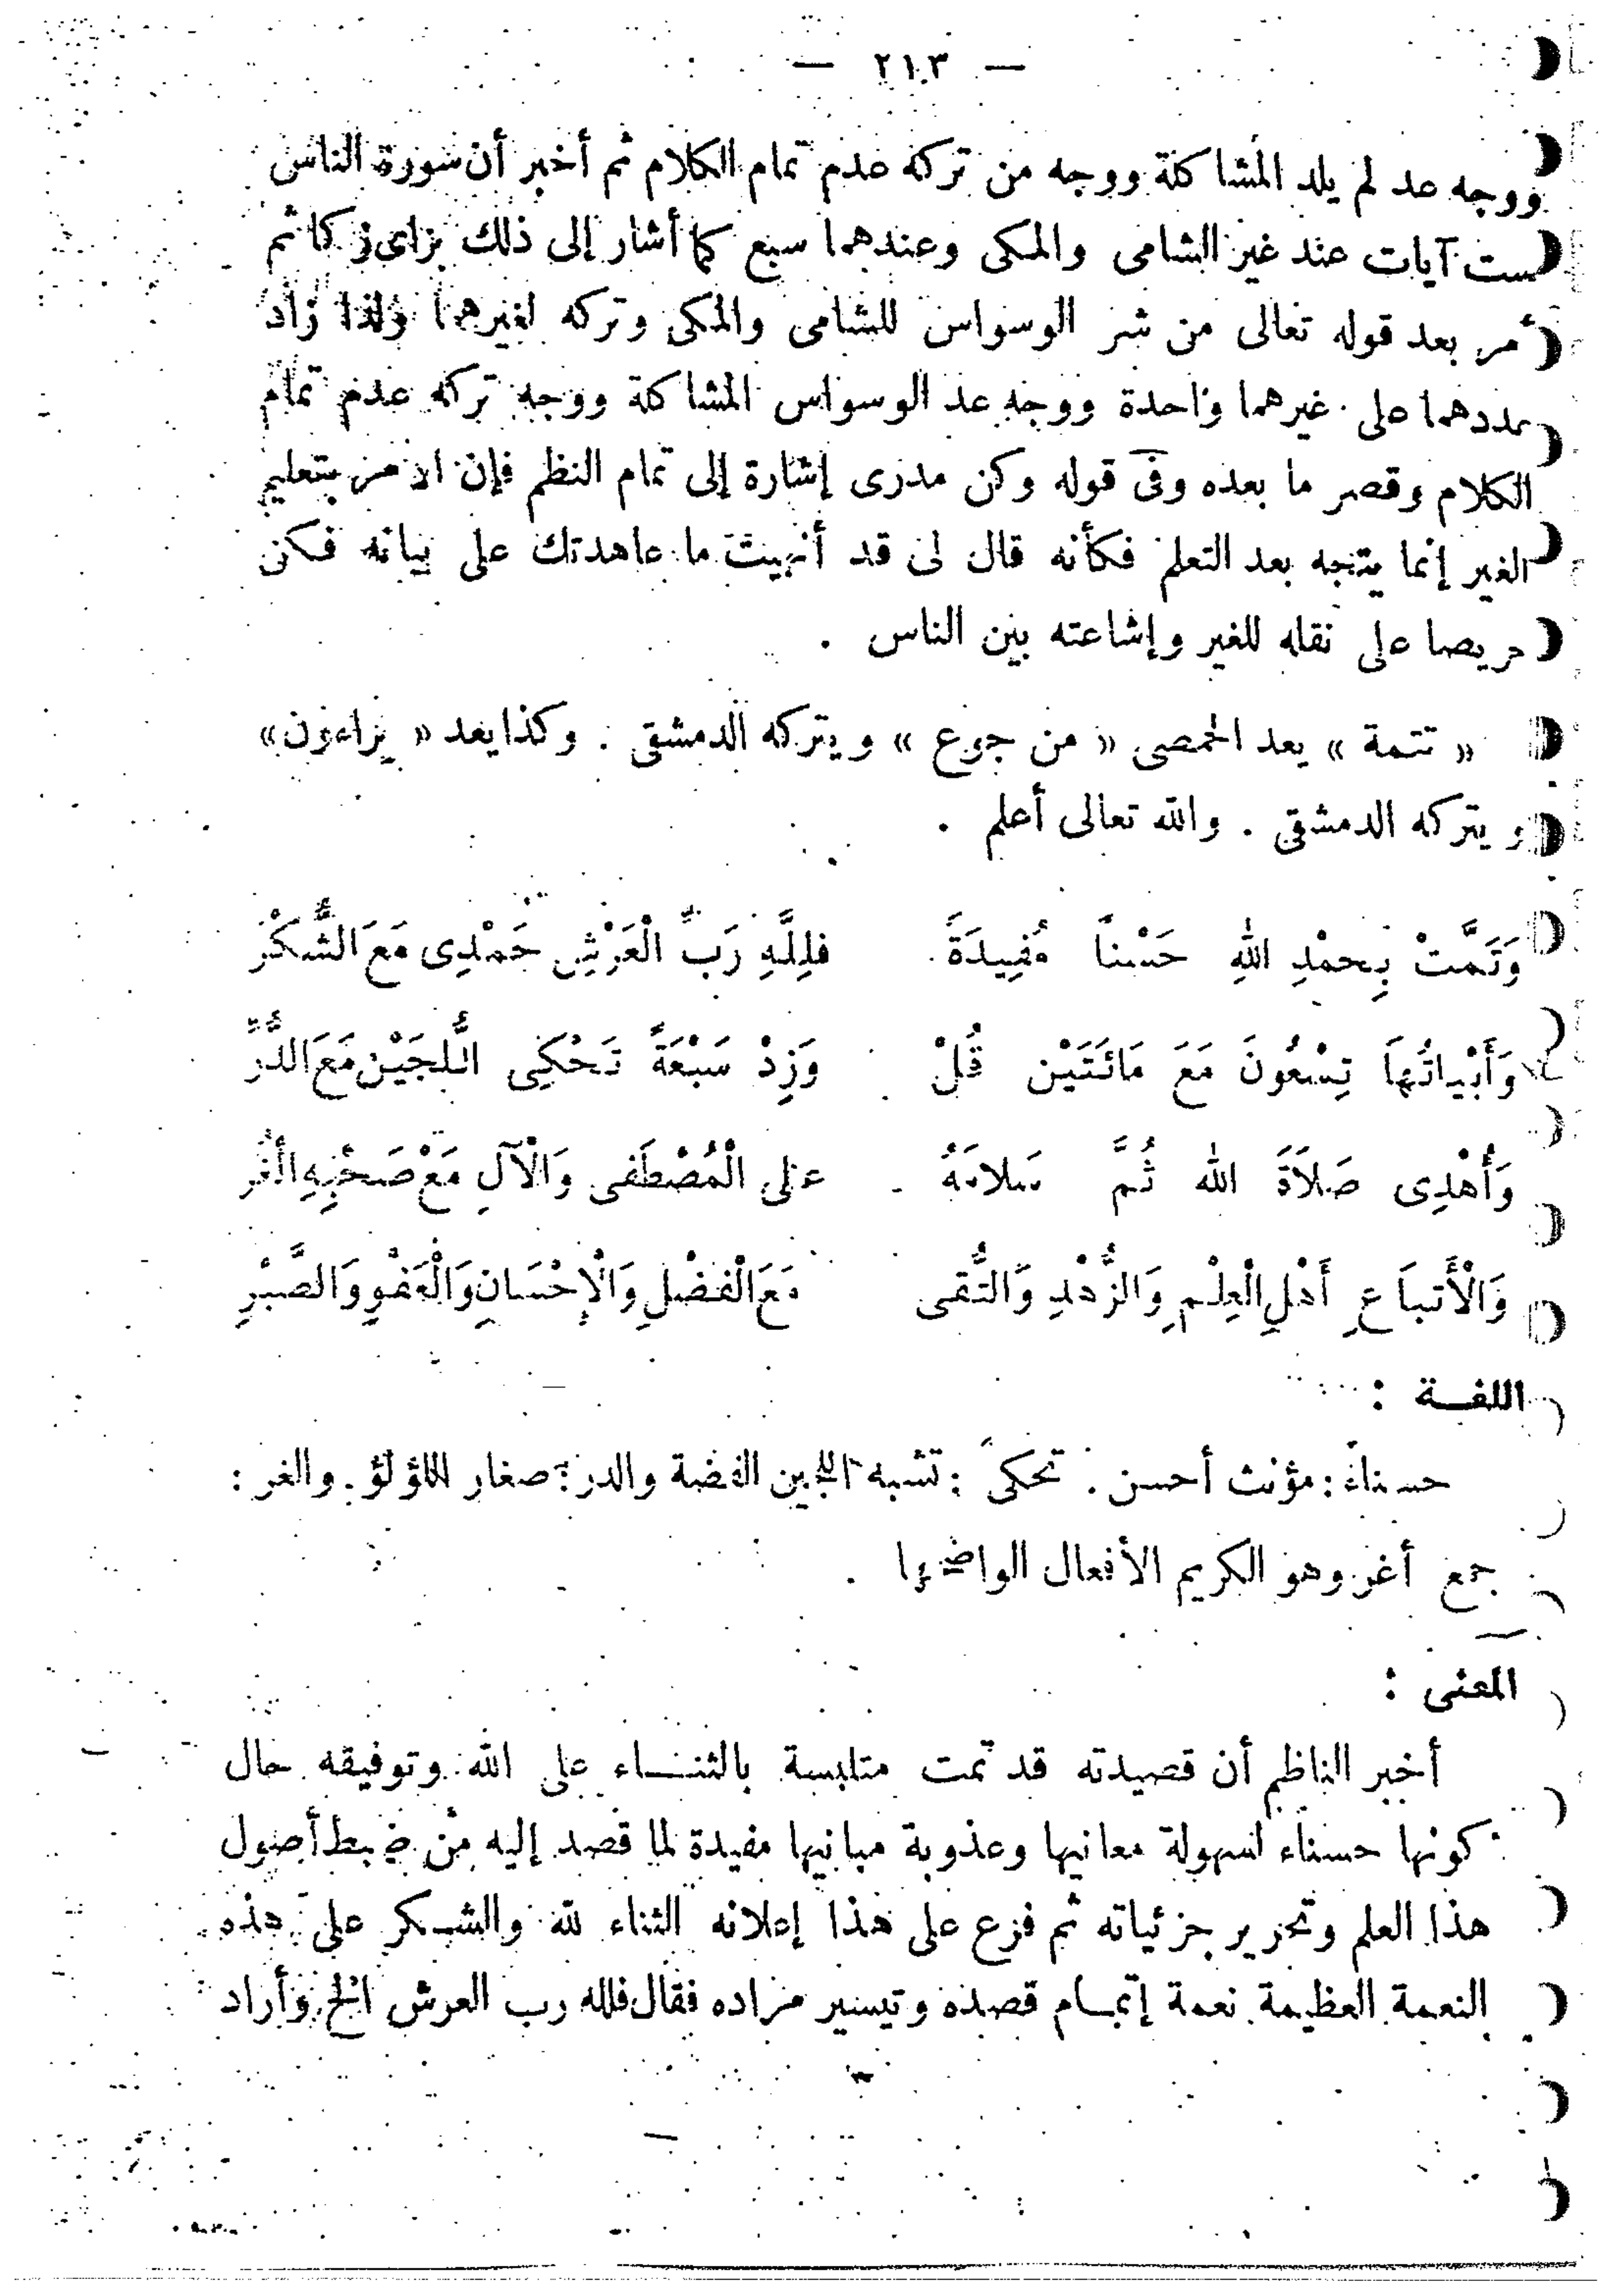 — ٢١٣ —
ووجه عد لم يلد المشاكلة ووجه من تركه عدم تمام الكلام ثم أخبر أن سورة الناس
ست آيات عند غير الشامى والمكى وعندهما سبع كما أشار إلى ذلك بزاى زكا ثم
أمر بعد قوله تعالى من شر الوسواس للشامى والمكى وتركه لغيرهما ولذا زاد
عددهما على غيرهما واحدة ووجه عد الوسواس المشاكلة ووجه تركه عدم تمام
الكلام وقصر ما بعده وفى قوله وكن مدرى إشارة إلى تمام النظم فإن الأمر بتعليم
الغير إنما يتجه بعد التعلم فكأنه قال لى قد أنهيت ما عاهدتك على بيانه فكن
حريصا على نقله للغير وإشاعته بين الناس .
« تتمة » يعد الحمصى « من جوع » ويتركه الدمشقى . وكذا يعد « يراءون»
ويتركه الدمشقى . والله تعالى أعلم .
وَتَمَّتْ بِحمْدِ اللهِ حَسْناً مُفِيدَةً فلِلَّهِ رَبِّ الْعَرْشِ حَمْدِى مَعَ الشُّكْرِ
وَأَبْيَاتُهاَ تِسْعُونَ مَعَ مَائَتَيْن قُلْ وَزِدْ سَبْعَةً تَحْكِى اللُّجَيْن مَعَ الدُّرِّ
وَأُهْدِى صَلاَةَ الله ثُمَّ سَلامَهُ عَلى الْمُصْطَفى وَالْآلِ مَعْ صَحْبِهِ الْغُر
وَالْأَتباَعِ أَهْلِ الْعِلْمِ وَالزُّهْدِ وَالتُّقى مَعَ الْفضْلِ وَالْإِحْسَانِ وَالْعَفْوِ وَالصَّبْرِ
اللغـة :
حسناء : مؤنث أحسن . تحكى : تشبه اللجين الفضة والدر : صغار اللؤلؤ . والغر :
جمع أغر وهو الكريم الأفعال الواضحها .
المعنى :
أخبر الناظم أن قصيدته قد تمت متلبسة بالثنـاء على الله وتوفيقه حال
كونها حسناء لسهولة معانيها وعذوبة مبانيها مفيدة لما قصد إليه من ضبط أصول
هذا العلم وتحرير جزئياته ثم فرع على هذا إعلانه الثناء لله والشـكر على هذه
النعمة العظيمة نعمة إتمـام قصده وتيسير مراده فقال فلله رب العرش الخ وأراد